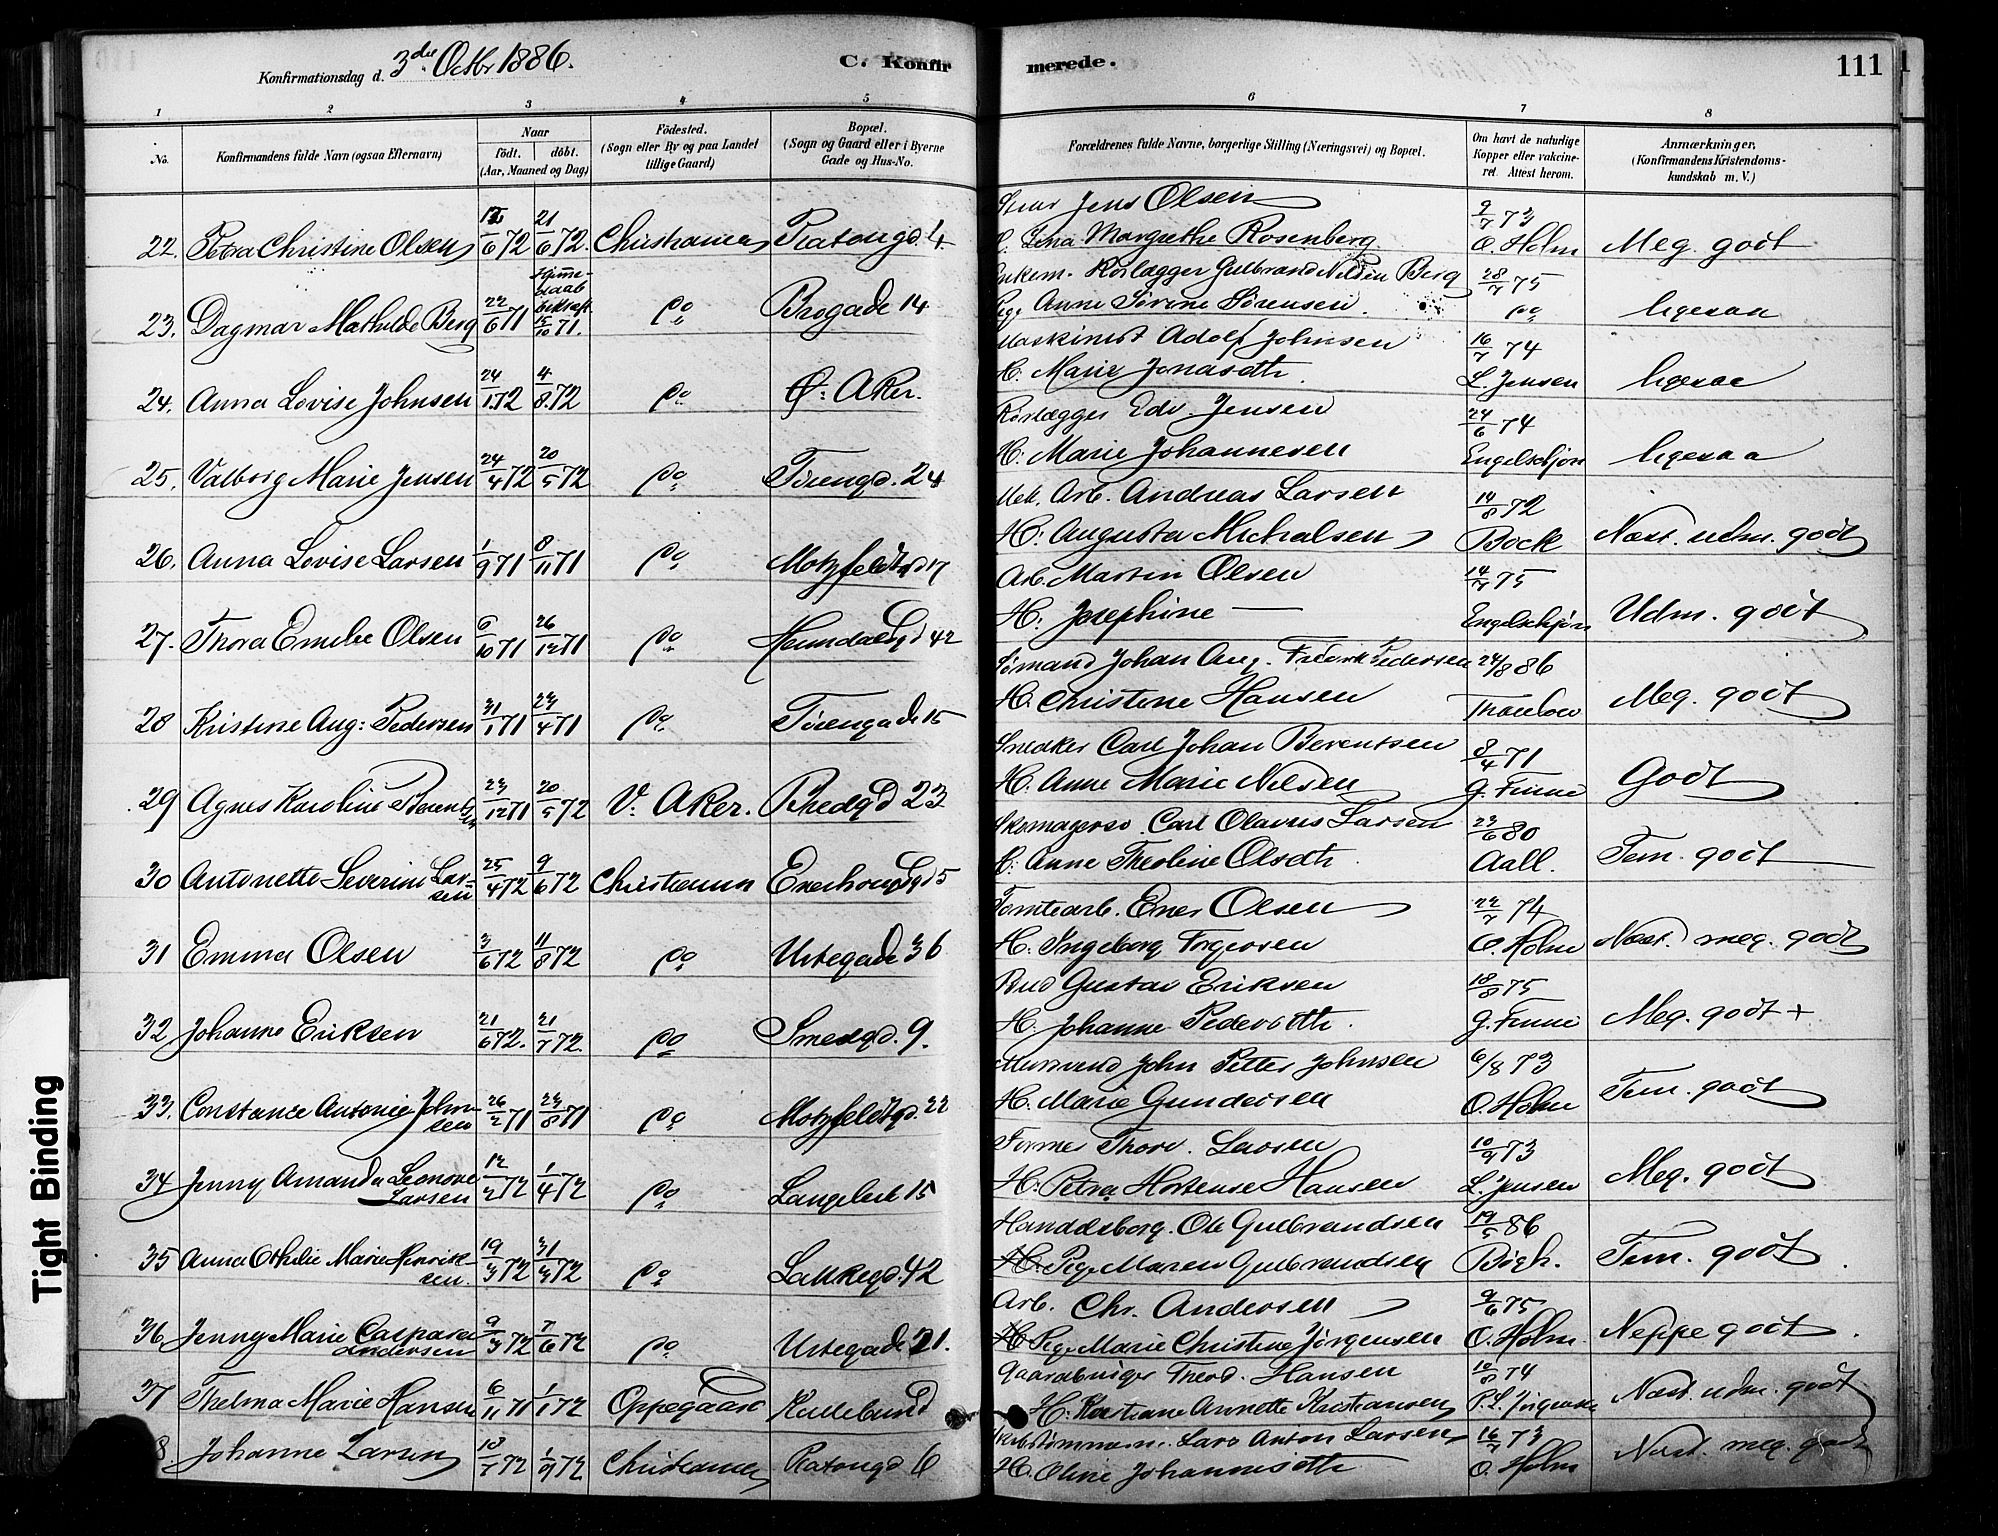 Konfirmationsdag d. 3die Octbr 1886.
C. Konfirmerede.
111
1 2 3 4 5 6 7 8
No.
Konfirmandens fulde Navn (ogsaa Efternavn)
Naar
født. døbt.
(Aar, Maaned og Dag)
Fødested.
(Sogn eller By og paa Landet
tillige Gaard)
Bopæl.
(Sogn og Gaard eller i Byerne
Gade og Hus-No.
Forældrenes fulde Navne, borgerlige Stilling (Næringsvei) og Bopæl.
Om havt de naturlige
Kopper eller vakcine-
ret. Attest herom.
Anmærkninger,
(Konfirmandens Kristendoms-
kundskab m. V.)
Jens Olsen 9/7 73
22. Petra Christine Olsen /6 72 21/6 72. Christiania Platougd. 4 Lina Margrethe Rosenberg O. Holm Meg. godt
Enkem. Rørlægger Gulbrand Nilsen Berg 28/7 75
23. Dagmar Mathilde Berg 22/6 71 Hjemme- daab bekræft. 15/10 71. do Brogade 14 Pige Anne Sørine Sørensen do ligesaa
Maskinist Adolf Johnsen 16/7 74
24. Anna Lovise Johnsen 24/1 72 4/8 72 do Ø. Aker. H. Marie Jonasdtr. L. Jensen ligesaa
Rørlægger Edv. Jensen 24/6 74
25. Valborg Marie Jensen 24/4 72 20/5 72 do Tøiengd. 24 H. Marie Johannesen Engelschjøn ligesaa
Mek. Arb. Andreas Larsen 14/8 72
26. Anna Lovise Larsen 1/9 71 8/11 71 do Motzfeldtsgd 17 H. Augusta Michalsen Bock Næst. udm. godt
Arb. Martin Olsen 14/7 75
27. Thora Emilie Olsen 6/10 71 26/12 71 do Heimdalsgd 42 H. Josephine — Engelschjøn Udm. godt
Sømand Johan Aug. Fredrik Pedersen 24/8 86
28 Kristine Aug: Pedersen 31/1 71 23/4 71 do Tøiengade 15 H. Christine Hansen Thaulow Meg. godt
Snedker Carl Johan Berentsen 8/4 71
29 Agnes Karoline Berentsen 23/12 71 20/5 72 V. Aker. Bredgd 23 H. Anne Marie Nilsen G. Finne Godt
Skomagersv. Carl Olavus Larsen 23/6 80
30 Antonette Severine Larsen 25/4 72 9/6 72 Christiania Enerhougsgd 5 H. Anne Theoline Olsdtr. Aall. Tem. godt
Tomtearb. Ener Olsen 22/7 74
31 Emma Olsen 3/6 72 11/8 72 do Urtegade 36 H. Ingeborg Torgersen O. Holm Næst. meg. godt
Bud Gustav Eriksen 18/8 75
32 Johanne Eriksen 21/6 72. 21/7 72. do Smedgd. 9. H. Johanne Pedersdtr. G. Finne Meg. godt +
Murmand John Petter Johnsen 6/8 73
33. Constance Antonie Johnsen 26/2 71 23/8 71 do Motzfeldtsgd. 22 H. Marie Gundersen O. Holm Tem. godt
Former Thorv. Larsen 10/9 73
34 Jenny Amanda Leonore Larsen 12/2 72 1/4 72 do Langeleik 15 H. Petra Hortense Hansen L. Jensen Meg. godt
Handelsborg. Ole Gulbrandsen 19/5 86
35 Anna Othilie Marie Henriksen. 19/3 72 31/3 72 do Lakkegd. 42 Pige Maren Gulbrandsen Bögh. Tem. godt
Arb. Chr. Andersen 9/6 75
36 Jenny Marie Caspara Andersen 9/3 72 7/6 72 do Urtegade 21. Pige Marie Christine Jørgensen O. Holm. Neppe godt
Gaardbruger Theod. Hansen 10/8 74
37 Thelma Marie Hansen 6/11 71 1/1 72 Oppegaard Kullebund H. Kristiane Annette Kristiansen P. L. Jørgensen Næst. udm. godt
Skibstømmerm. Lars Anton Larsen 16/7 73
8. Johanne Larsen 13/7 72 1/9 72 Christiania Platougd 6 H. Oline Johannesdtr O. Holm Næst. meg. godt
Tight Binding